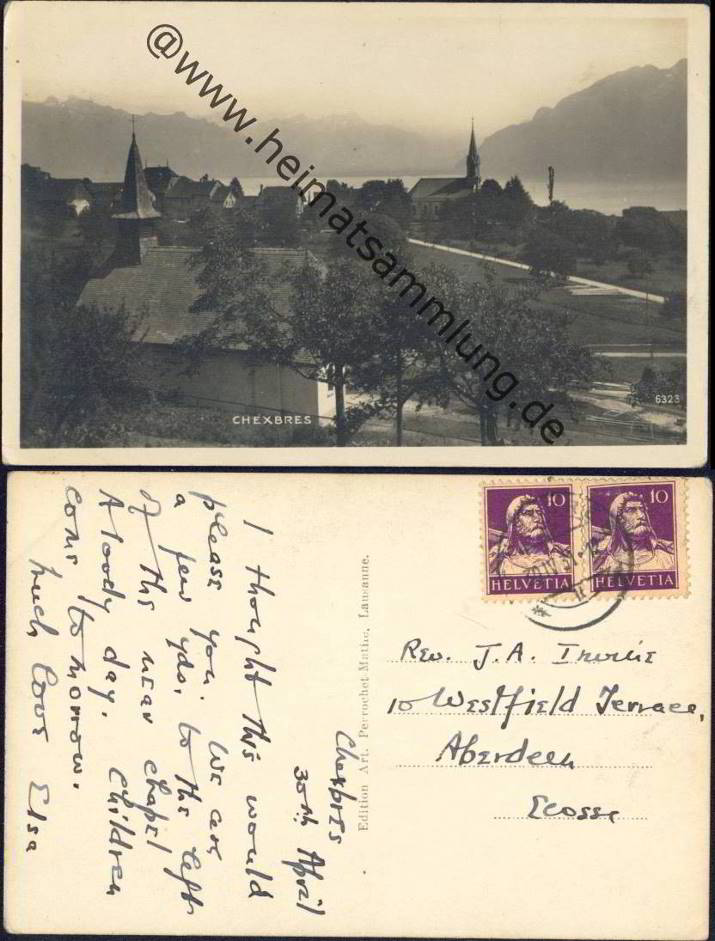 @www.heimatsammlung.de
CHEXBRES
6323
10
10
HELVETIA
HELVETIA
Chexbres
30th April
I thought this would
please you. We are
a few yds. to the left
of the near chapel
A loody day. Children
come tomorrow.
Much Love Elsa
Edition Art. Perrochet-Matile, Lausanne.
Rev. J.A. Irvine
10 Westfield Terrace,
Aberdeen
Ecosse